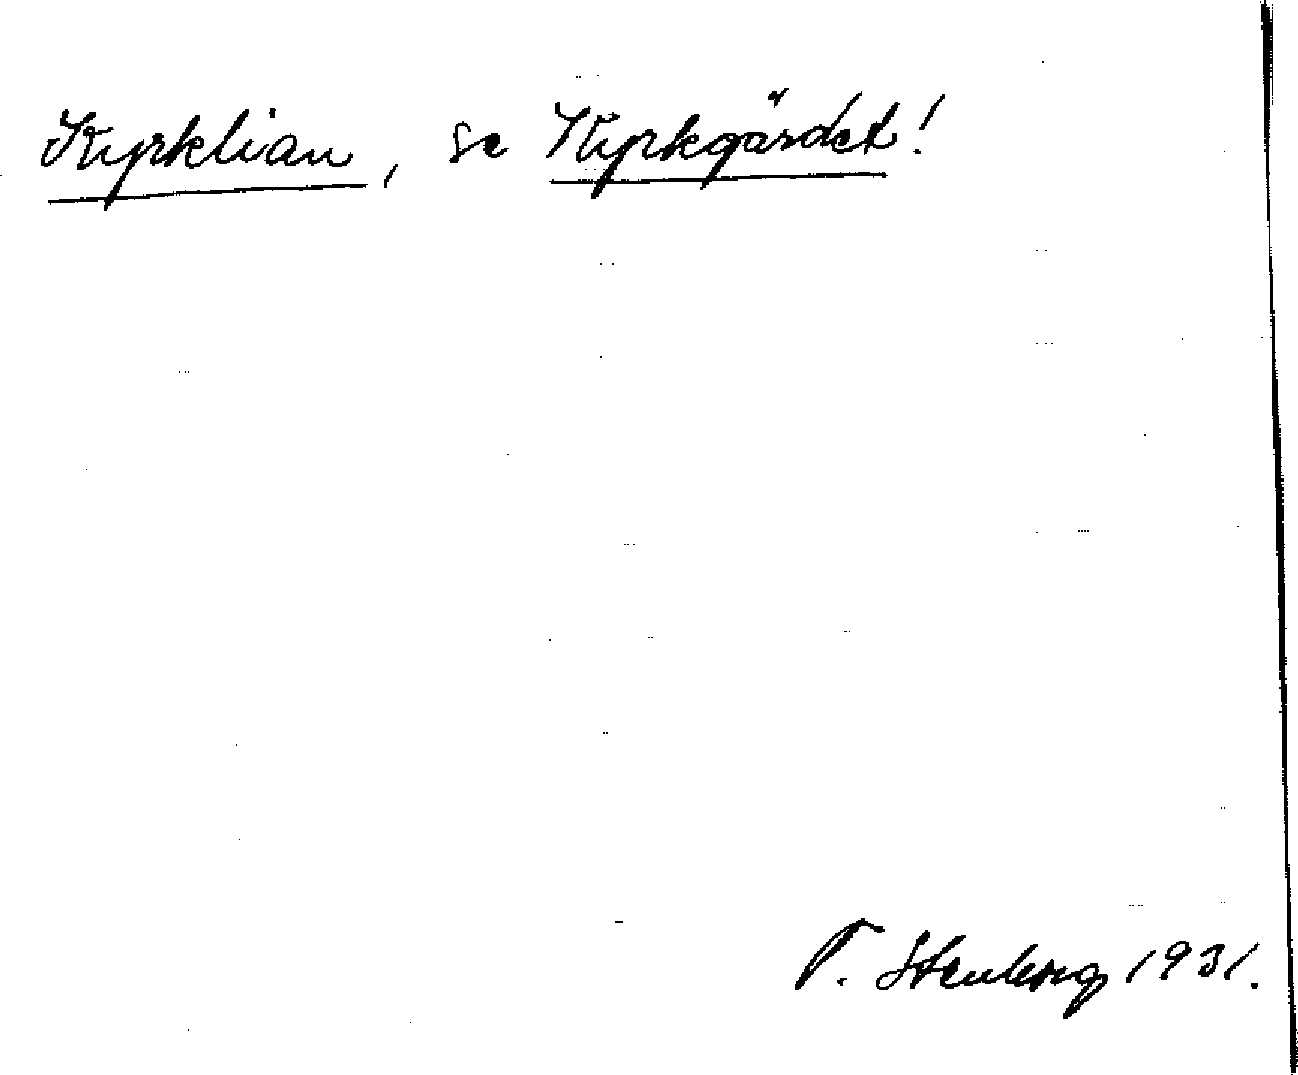 Kyrklian, se Kyrkgärdet!
T. Stenberg 1931.